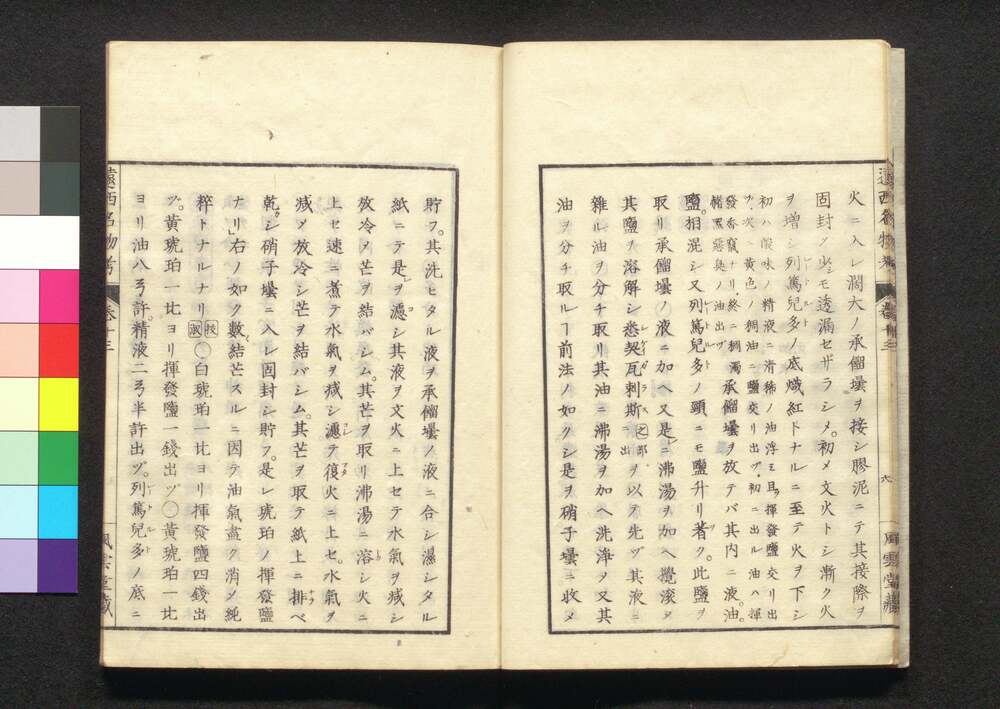 火ニ入レ濶大ノ承偪壜ヲ接シ膠泥ニテ其接際ヲ
固封ソ少モ透漏セザラシメ。初メ文火トシ漸ク火
ヲ増シ列篤兒多ノ底熾紅トナルニ至テ火ヲ下シ
初ハ酸味ノ精液ニ清稀ノ油浮ミ且揮發鹽交リ出
ヅ次ニ黄色ノ稠油ニ鹽交リ出ヅ初ニ出ル油ハ揮
發香竄ナリ終ニ稠濁
稍黑惡臭ノ油出ヅ
承偪壜ヲ放テバ其内ニ液油。
鹽。相混シ又列篤兒多ノ頸ニモ鹽升リ著ク。此鹽ヲ
取リ承偪壜ノ液ニ加ヘ又是ニ沸湯ヲ加ヘ攪滾ソ
其鹽ヲ溶解シ悉契瓦刺斯ニヲ以テ先ヅ其液ニ
雜ル油ヲ分チ取リ其油ニ沸湯ヲ加ヘ洗浄メ又其
油ヲ分チ取ルヿ前法ノ如クシ是ヲ硝子壜ニ收メ
遠西名物考
卷十三
六
風雲堂藏
貯フ。其洗ヒタル液ヲ承偪壜ノ液ニ合シ濕シタル
紙ニテ是ヲ濾シ其液ヲ文火ニ上セテ水氣ヲ減シ
放冷メ芒ヲ結バシム。其芒ヲ取リ沸湯ニ溶シ火ニ
上セ速ニ煮テ水氣ヲ減シ濾テ復火ニ上セ。水氣ヲ
減ソ放冷シ芒ヲ結バシム。其芒ヲ取テ紙上ニ排ベ
乾シ硝子壜ニ入レ固封シ貯フ。是レ琥珀ノ揮發鹽
ナリ」右ノ如ク數結芒スルニ因テ油氣盡ク消ソ純
粹トナルナリ〇白琥珀一比ヨリ揮發鹽四錢出
ヅ。黄琥珀一比ヨリ揮發鹽一錢出ヅ〇黄琥珀一比
ヨリ油八ヲ許。精液二ヲ半許出ヅ。列篤兒多ノ底ニ
遠西名物考
卷十三
風雲堂藏